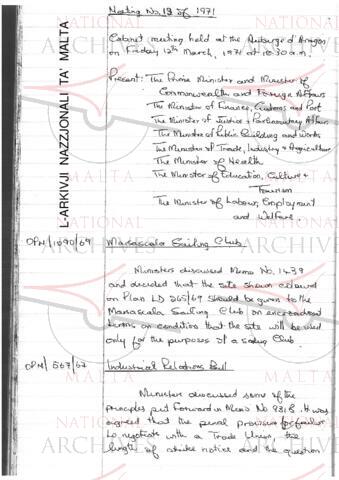 Meeting No. 13 of 1971
Cabinet meeting held at the Auberge d'Aragon
on Friday 12th March, 1971 at 10.30 a.m.
Present: The Prime Minister and Minister of
Commonwealth and Foreign Affairs
The Minister of Finance, Customs and Port
The Minister of Justice & Parliamentary Affairs
The Minister of Public Building and Works
The Minister of Trade, Industry & Agriculture
The Minister of Health
The Minister of Education, Culture &
Tourism
The Minister of Labour, Employment
and Welfare.
OPM/1090/69 Marsascala Sailing Club
Ministers discussed Memo No. 1439
and decided that the site shown coloured
on Plan LD 265/69 should be given to the
Marsascala Sailing Club on encroachment
terms on condition that the site will be used
only for the purposes of a sailing Club.
OPM/567/62 Industrial Relations Bill
Ministers discussed some of the
principles put forward in Memo No 931B. It was
agreed that the penal provisions for failure
to negotiate with a Trade Union, the
length of strike notice and the question
L-ARKIVJI NAZZJONALI TA' MALTA
NATIONAL
ARCHIVES
MALTA